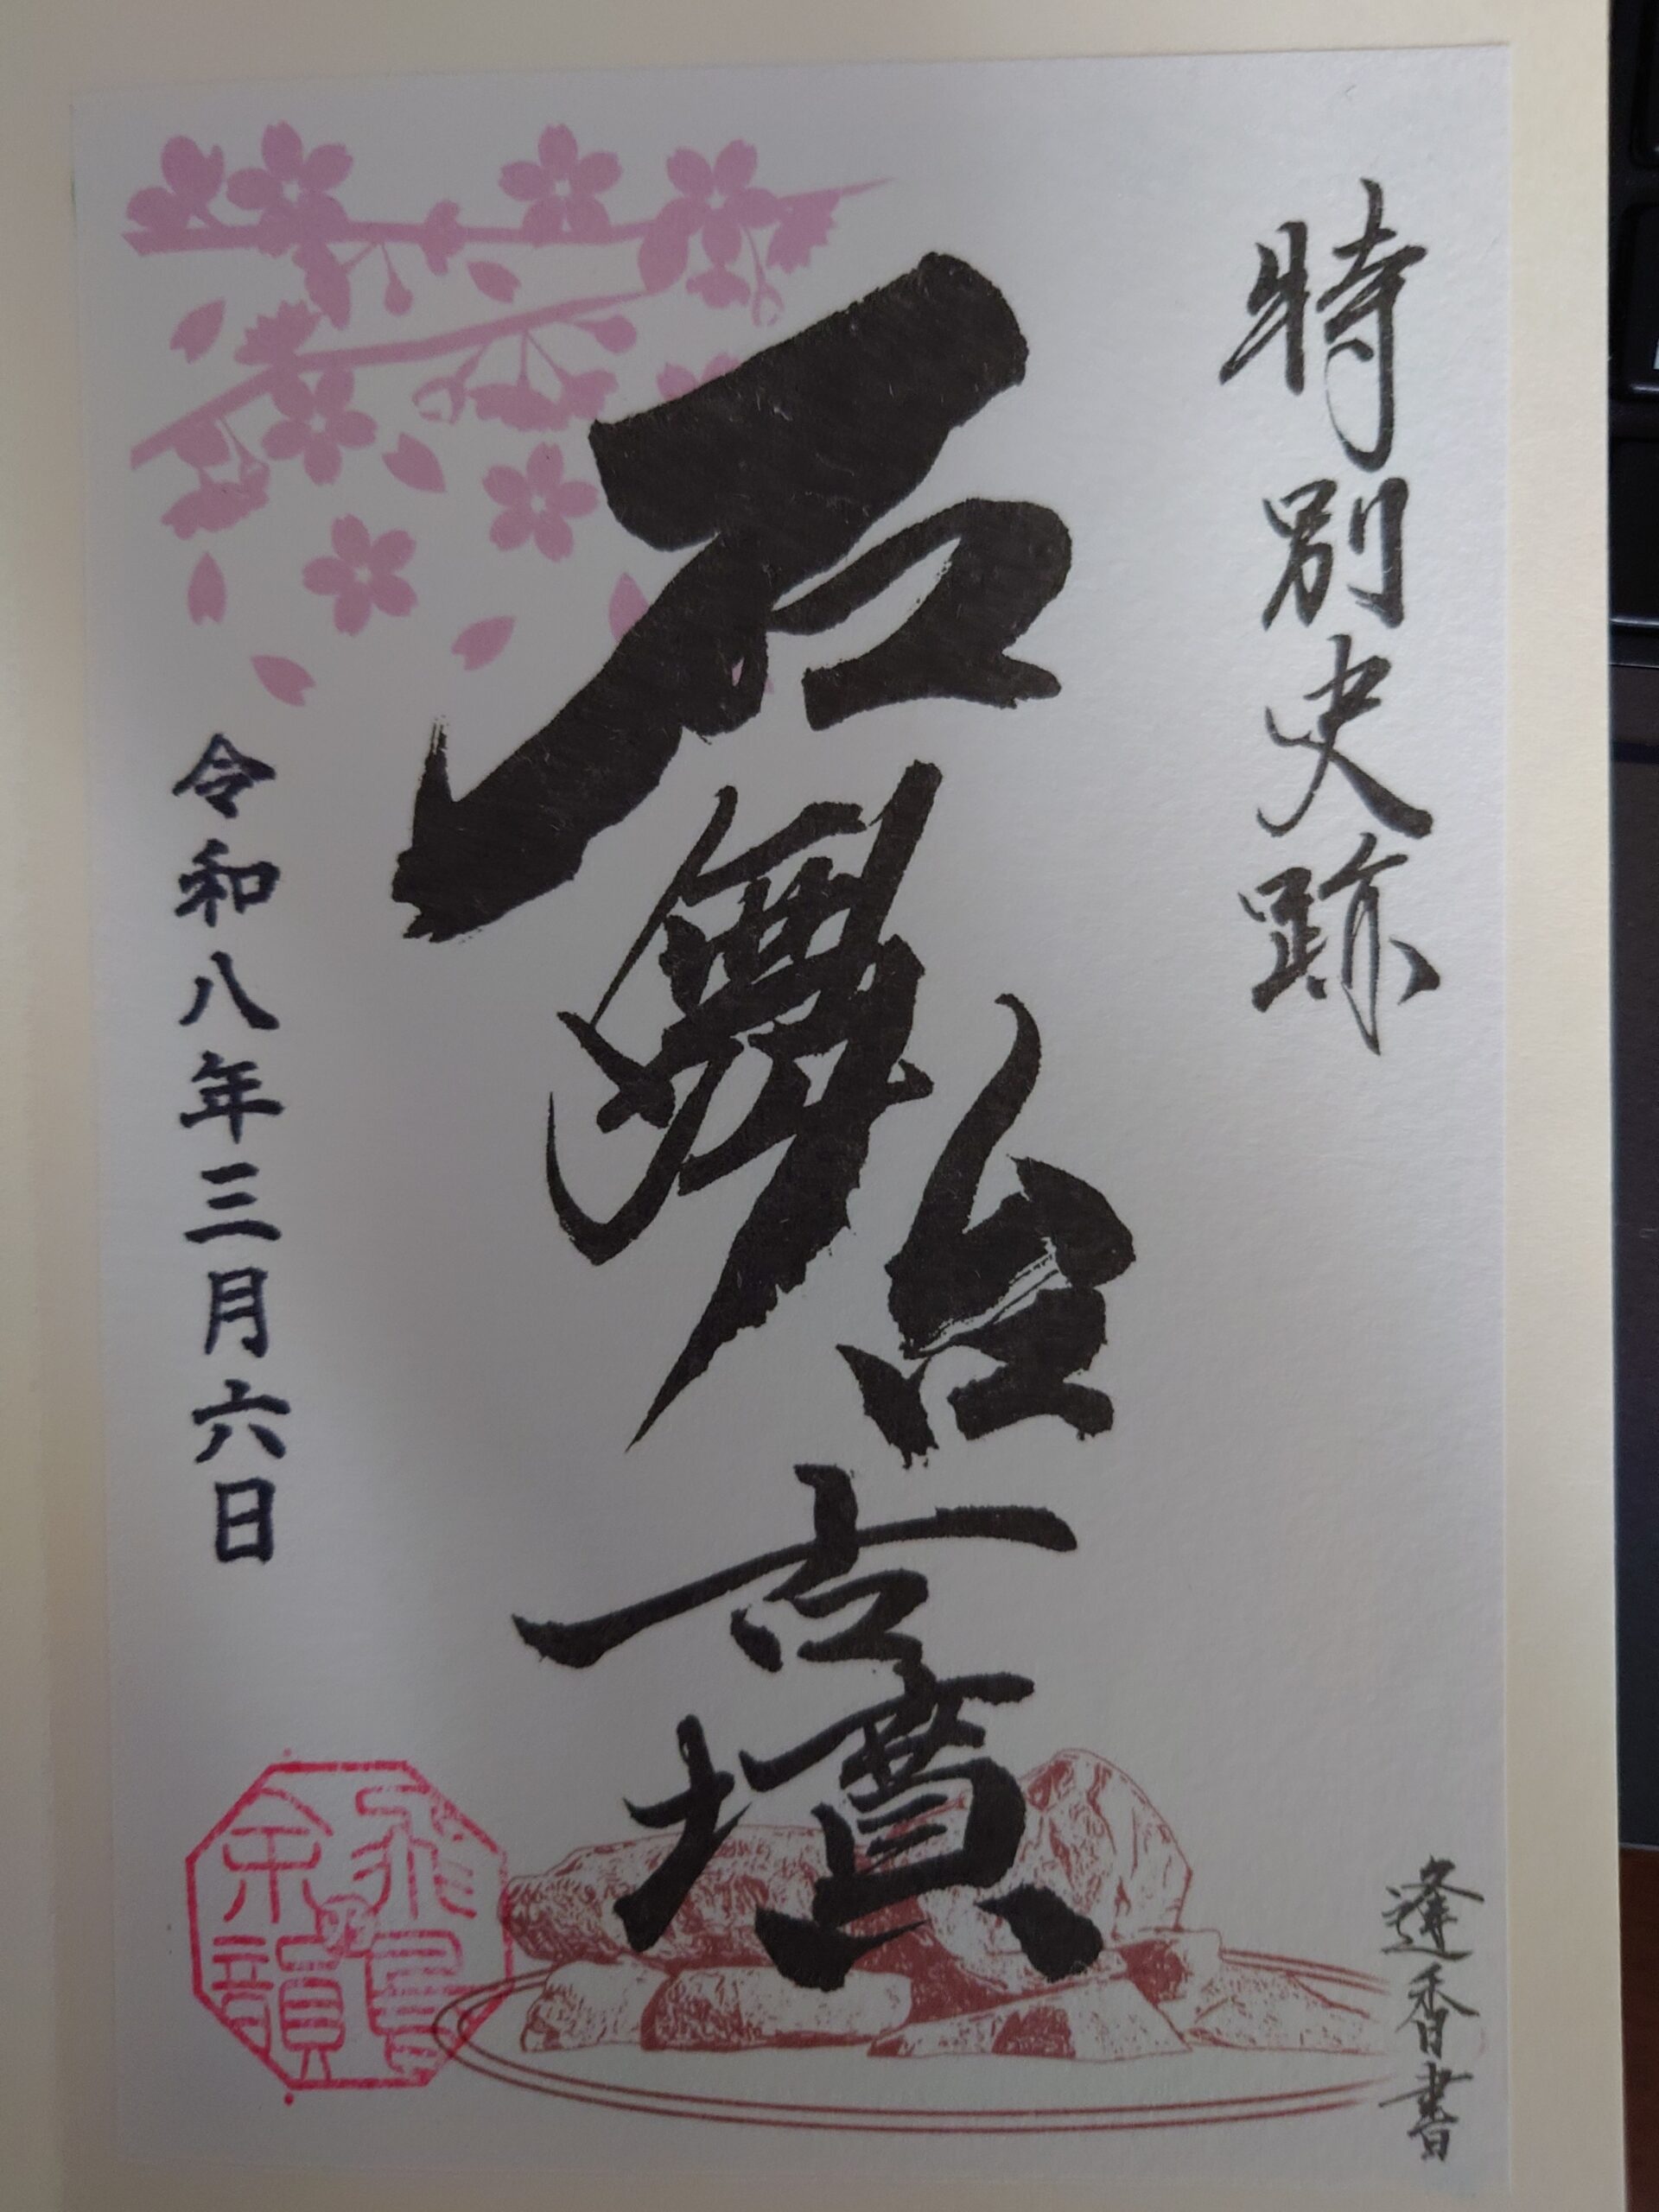 特別史跡
石舞台古墳
令和八年三月六日
逢香書